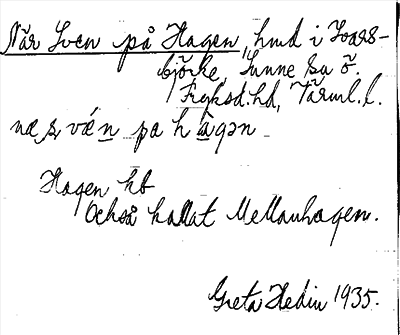 När Sven på Hagen, hmd i Ivars-
björke, Sunne sn ö.
Fryksd. hd, Värml. l.
næʂ væ̂n pa hâgən
Hagen hb
också kallat Mellanhagen.
Greta Hedin 1935.